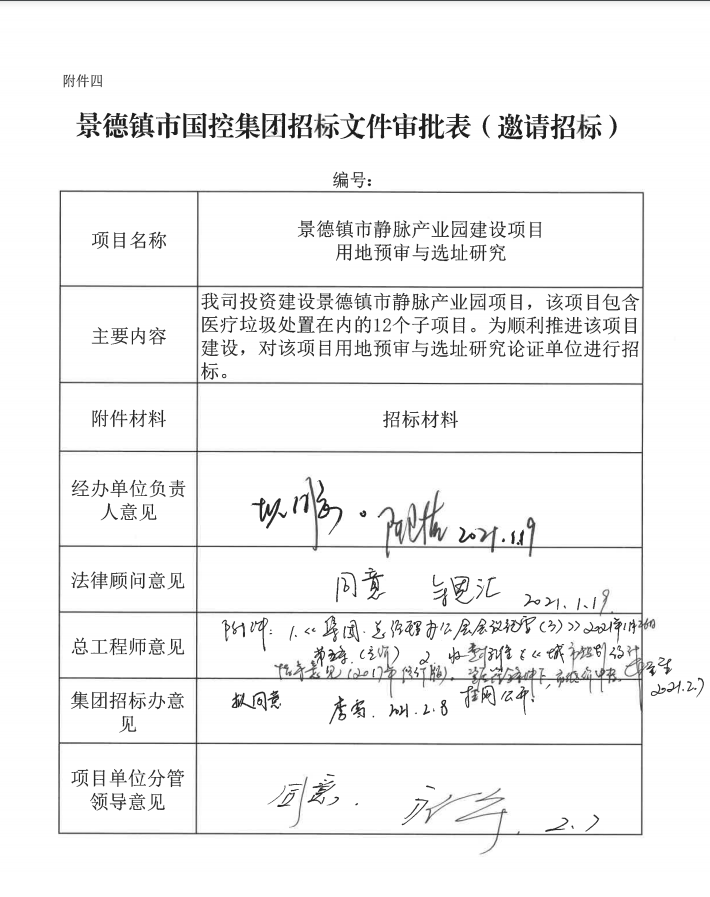 附件四
景德镇市国控集团招标文件审批表（邀请招标）
编号：
项目名称
景德镇市静脉产业园建设项目
用地预审与选址研究
主要内容
我司投资建设景德镇市静脉产业园项目，该项目包含
医疗垃圾处置在内的12个子项目。为顺利推进该项目
建设，对该项目用地预审与选址研究论证单位进行招
标。
附件材料
招标材料
经办单位负责
人意见
2021.1.19
法律顾问意见
同意
2021.1.19.
总工程师意见
附件：1.《集团总经理办公会会议纪要（3）》2021年1月26日
2.
指导意见（2017年修订版）。
2021.2.7
集团招标办意
见
拟同意
2021.2.8
挂网公开！
项目单位分管
领导意见
同意.
2.7